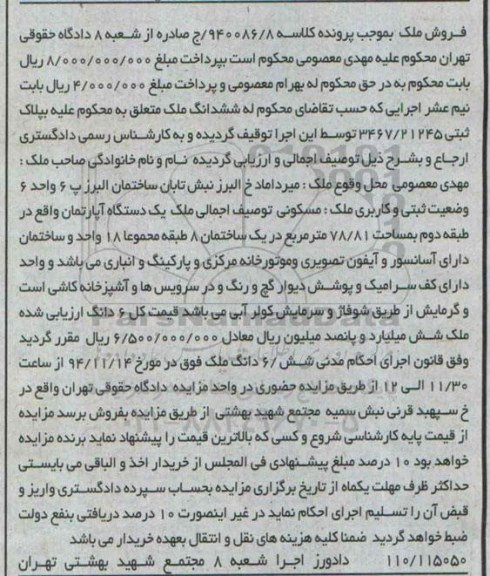 فروش ملک بموجب پرونده کلاسه ۹۴۰۰۸۶/۸/ج صادره از شعبه ۸ دادگاه حقوقی
تهران محکوم علیه مهدی معصومی محکوم است بپرداخت مبلغ ۸/۰۰۰/۰۰۰/۰۰۰ ریال
بابت محکوم به در حق محکوم له بهرام معصومی و پرداخت مبلغ ۴/۰۰۰/۰۰۰ ریال بابت
نیم عشر اجرایی که حسب تقاضای محکوم له ششدانگ ملک متعلق به محکوم علیه بپلاک
ثبتی ۳۴۶۷/۲۱۲۴۵ توسط این اجرا توقیف گردیده و به کارشناس رسمی دادگستری
ارجاع و بشرح ذیل توصیف اجمالی و ارزیابی گردیده نام و نام خانوادگی صاحب ملک :
مهدی معصومی محل وقوع ملک : میرداماد خ البرز نبش تابان ساختمان البرز پ ۶ واحد ۶
وضعیت ثبتی و کاربری ملک : مسکونی توصیف اجمالی ملک یک دستگاه آپارتمان واقع در
طبقه دوم بمساحت ۷۸/۸۱ مترمربع در یک ساختمان ۸ طبقه مجموعا ۱۸ واحد و ساختمان
دارای آسانسور و آیفون تصویری وموتورخانه مرکزی و پارکینگ و انباری می باشد و واحد
دارای کف سرامیک و پوشش دیوار گچ و رنگ و در سرویس ها و آشپزخانه کاشی است
و گرمایش از طریق شوفاژ و سرمایش کولر آبی می باشد قیمت کل ۶ دانگ ارزیابی شده
ملک شش میلیارد و پانصد میلیون ریال معادل ۶/۵۰۰/۰۰۰/۰۰۰ ریال مقرر گردید
وفق قانون اجرای احکام مدنی شش /۶ دانگ ملک فوق در مورخ ۹۴/۱۱/۱۴ از ساعت
۱۱/۳۰ الی ۱۲ از طریق مزایده حضوری در واحد مزایده دادگاه حقوقی تهران واقع در
خ سپهبد قرنی نبش سمیه مجتمع شهید بهشتی از طریق مزایده بفروش برسد مزایده
از قیمت پایه کارشناسی شروع و کسی که بالاترین قیمت را پیشنهاد نماید برنده مزایده
خواهد بود ۱۰ درصد مبلغ پیشنهادی فی المجلس از خریدار اخذ و الباقی می بایستی
حداکثر ظرف مهلت یکماه از تاریخ برگزاری مزایده بحساب سپرده دادگستری واریز و
قبض آن را تسلیم اجرای احکام نماید در غیر اینصورت ۱۰ درصد دریافتی بنفع دولت
ضبط خواهد گردید ضمنا کلیه هزینه های نقل و انتقال بعهده خریدار می باشد
۱۱۰/۱۱۵۰۵۰ دادورز اجرا شعبه ۸ مجتمع شهید بهشتی تهران